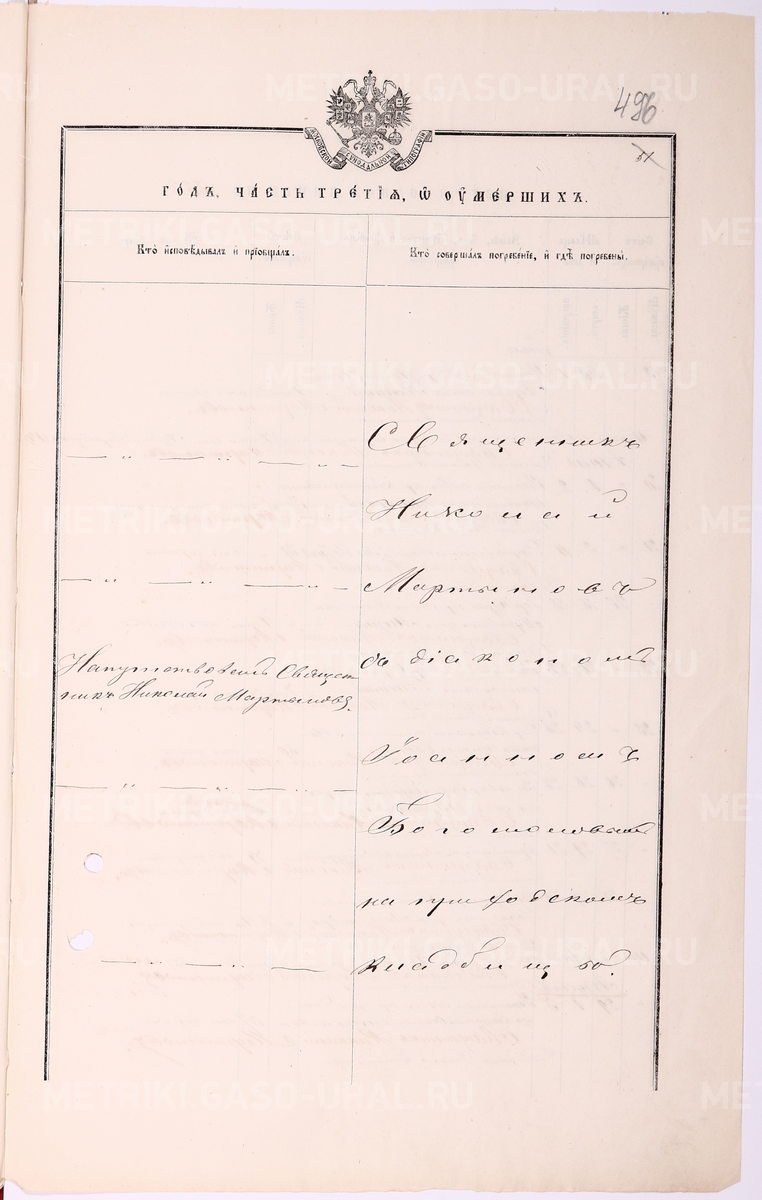 496
51
МОСКОВСКОЙ СѴНОДАЛЬНОЙ ТѴПОГРАФІИ
ГО́ДЪ, ЧА́СТЬ ТРЕ́ТІѦ, Ѡ҆ ОУ҆МЕ́РШИХЪ.
Кто̀ и҆сповѣ́дывалъ и҆ прїѡбща́лъ.
Кто̀ соверша́лъ погребе́нїе, и҆ гдѣ̀ погребены̀.
Священникъ
— " — " — " —
Николай
— " — " — " —
Мартыновъ
Напутствовалъ Священ
никъ Николай Мартыновъ.
съ діакономъ
Іоанномъ
— " — " — " —
Богомоловымъ
на приходскомъ
— " — " —
кладбищѣ.
METRIKI.GASO-URAL.RU